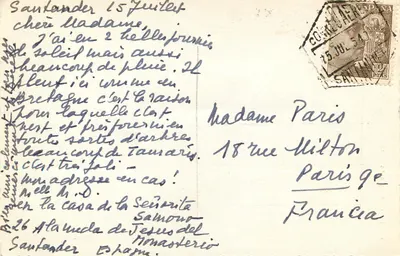 Santander 15 Juillet
Chère Madame,
J'ai eu 2 belles journées
de soleil mais aussi
beaucoup de pluie. Il
pleut ici comme en
Bretagne c'est la raison
pour laquelle c'est
vert et très
toutes sortes d'arbres
beaucoup de Tamaris.
c'est très joli -
mon adresse en cas!
Melle M. D.
en la casa de la Señorita
Samono
26 Alameda de Jesus del
Monasterio
Santander Espagne.
CORREO AEREO
15 JUL 54
SANTANDER
Madame Paris
18 rue Milton
Paris 9e
Francia